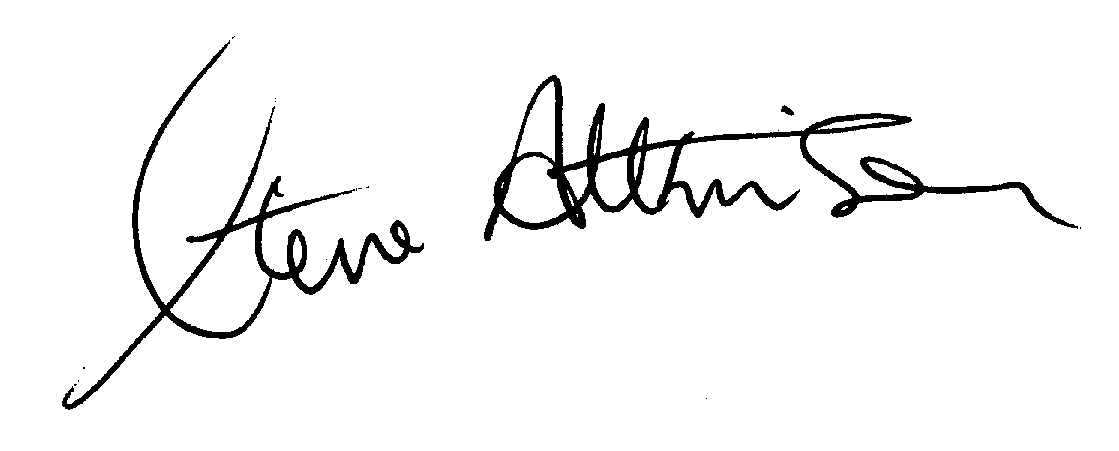 Steve Atkinson